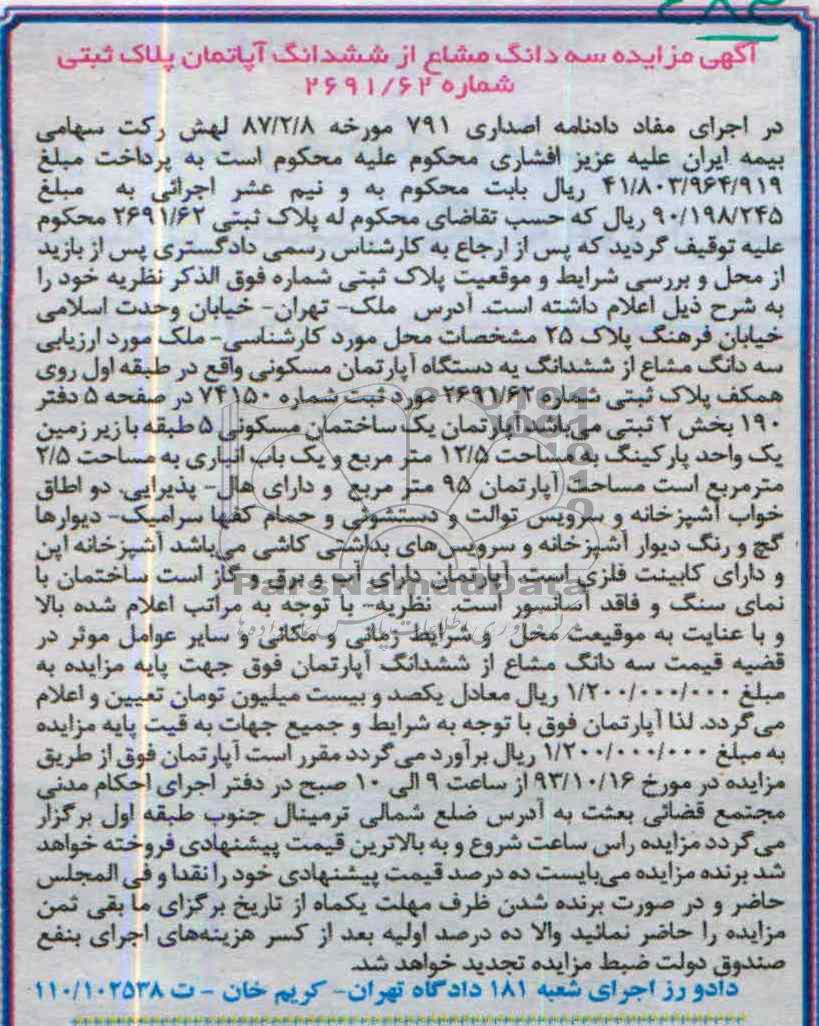 آگهی مزایده سه دانگ مشاع از ششدانگ آپاتمان پلاک ثبتی
شماره ۲۶۹۱/۶۲
در اجرای مفاد دادنامه اصداری ۷۹۱ مورخه ۸۷/۲/۸ لهش رکت سهامی
بیمه ایران علیه عزیز افشاری محکوم علیه محکوم است به پرداخت مبلغ
۴۱/۸۰۳/۹۶۴/۹۱۹ ریال بابت محکوم به و نیم عشر اجرائی به مبلغ
۹۰/۱۹۸/۲۴۵ ریال که حسب تقاضای محکوم له پلاک ثبتی ۲۶۹۱/۶۲ محکوم
علیه توقیف گردید که پس از ارجاع به کارشناس رسمی دادگستری پس از بازید
از محل و بررسی شرایط و موقعیت پلاک ثبتی شماره فوق الذکر نظریه خود را
به شرح ذیل اعلام داشته است. آدرس ملک- تهران- خیابان وحدت اسلامی
خیابان فرهنگ پلاک ۲۵ مشخصات محل مورد کارشناسی- ملک مورد ارزیابی
سه دانگ مشاع از ششدانگ یه دستگاه آپارتمان مسکونی واقع در طبقه اول روی
همکف پلاک ثبتی شماره ۲۶۹۱/۶۲ مورد ثبت شماره ۷۴۱۵۰ در صفحه ۵ دفتر
۱۹۰ بخش ۲ ثبتی می‌باشد آپارتمان یک ساختمان مسکونی ۵ طبقه با زیر زمین
یک واحد پارکینگ به مساحت ۱۲/۵ متر مربع و یک باب انباری به مساحت ۲/۵
مترمربع است مساحت آپارتمان ۹۵ متر مربع و دارای هال- پذیرایی، دو اطاق
خواب آشپزخانه و سرویس توالت و دستشوئی و حمام کفها سرامیک- دیوارها
گچ و رنگ دیوار آشپزخانه و سرویس‌های بداشتی کاشی می‌باشد آشپزخانه اپن
و دارای کابینت فلزی است. آپارتمان دارای آب و برق و گاز است ساختمان با
ParsNamadData
نمای سنگ و فاقد آسانسور است. نظریه- با توجه به مراتب اعلام شده بالا
و با عنایت به موقیعت محل و شرایط زمانی و مکانی و سایر عوامل موثر در
قضیه قیمت سه دانگ مشاع از ششدانگ آپارتمان فوق جهت پایه مزایده به
مبلغ ۱/۲۰۰/۰۰۰/۰۰۰ ریال معادل یکصد و بیست میلیون تومان تعیین و اعلام
می‌گردد. لذا آپارتمان فوق با توجه به شرایط و جمیع جهات به قیت پایه مزایده
به مبلغ ۱/۲۰۰/۰۰۰/۰۰۰ ریال برآورد می‌گردد مقرر است آپارتمان فوق از طریق
مزایده در مورخ ۹۳/۱۰/۱۶ از ساعت ۹ الی ۱۰ صبح در دفتر اجرای احکام مدنی
مجتمع قضائی بعثت به آدرس ضلع شمالی ترمینال جنوب طبقه اول برگزار
می‌گردد مزایده راس ساعت شروع و به بالاترین قیمت پیشنهادی فروخته خواهد
شد برنده مزایده می‌بایست ده درصد قیمت پیشنهادی خود را نقدا و فی المجلس
حاضر و در صورت برنده شدن ظرف مهلت یکماه از تاریخ برگزای ما بقی ثمن
مزایده را حاضر نمائید والا ده درصد اولیه بعد از کسر هزینه‌های اجرای بنفع
صندوق دولت ضبط مزایده تجدید خواهد شد.
دادو رز اجرای شعبه ۱۸۱ دادگاه تهران- کریم خان - ت ۱۱۰/۱۰۲۵۳۸